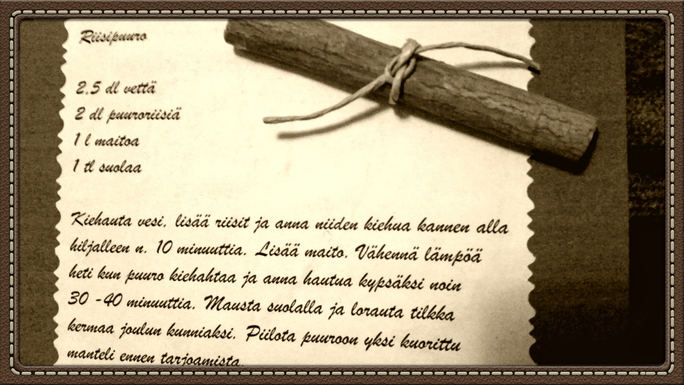 Riisipuuro
2,5 dl vettä
2 dl puuroriisiä
1 l maitoa
1 tl suolaa
Kiehauta vesi, lisää riisit ja anna niiden kiehua kannen alla
hiljalleen n. 10 minuuttia. Lisää maito. Vähennä lämpöä
heti kun puuro kiehahtaa ja anna hautua kypsäksi noin
30 -40 minuuttia. Mausta suolalla ja lorauta tilkka
kermaa joulun kunniaksi. Piilota puuroon yksi kuorittu
manteli ennen tarjoamista.